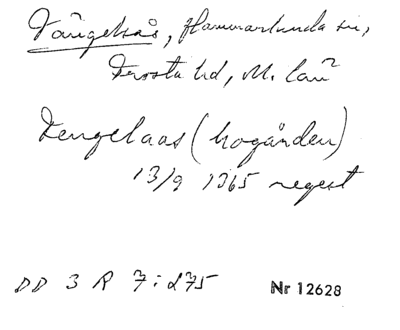 Tängelsås, Hammarlunda sn,
Frosta hd, M. län
Tengelaas (hogånden)
13/9 1365 regest
DD 3 R 7:275
Nr 12628